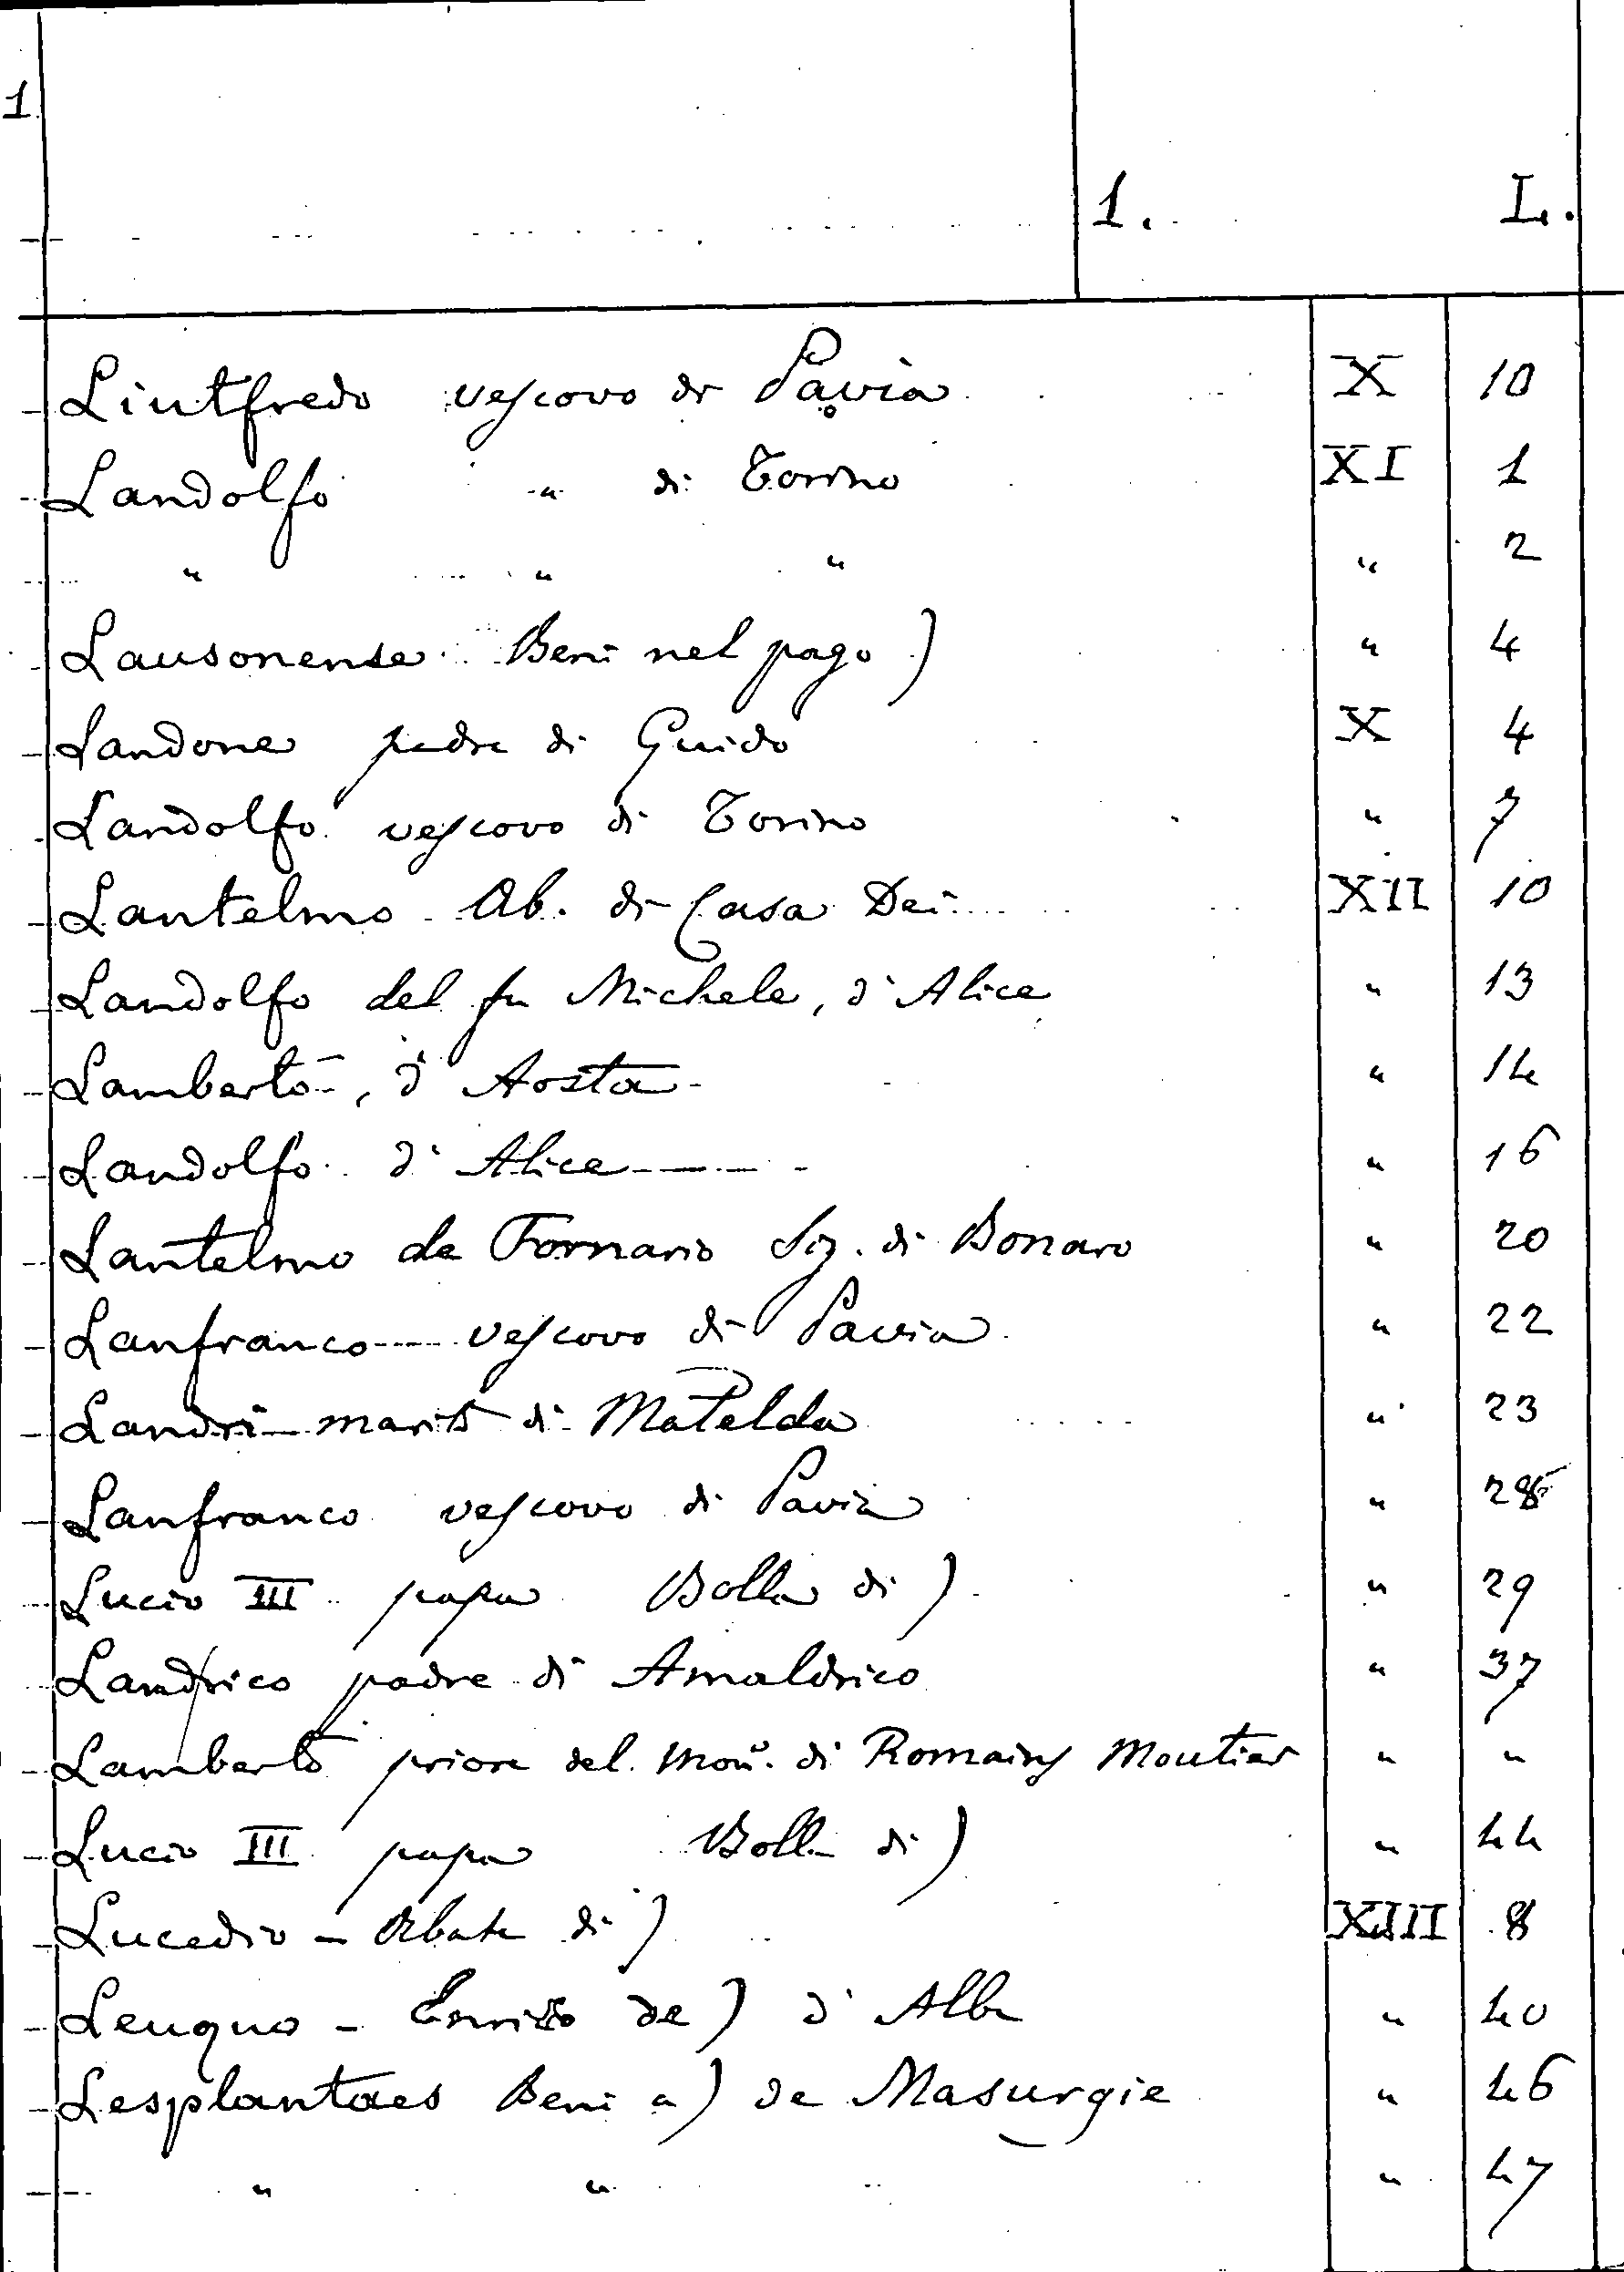 1
1. L.
Liutfredo vescovo di Pavia X 10
Landolfo " di Torino XI 1
" " " " 2
Lausonense Beni nel pago) " 4
Landone padre di Guido X 4
Landolfo vescovo di Torino " 7
Lantelmo Ab. di Casa Dei XII 10
Landolfo del fu Michele, d'Alice " 13
Lamberto, d'Aosta " 14
Landolfo d'Alice " 16
Lantelmo de Fornario Sig. di Bonaro " 20
Lanfranco vescovo di Pavia " 22
Landri marito di Matelda " 23
Lanfranco vescovo di Pavia " 28
Lucio III papa Bolla di) " 29
Landrico padre di Amaldrico " 37
Lamberto priore del Mon. di Romains Moutier " "
Lucio III papa Bolla di) " 44
Lucedio - Abate di) XIII 8
Leuquo - de) d'Alba " 40
Lesplantaes Beni a) de Masurgie " 46
" " " 47